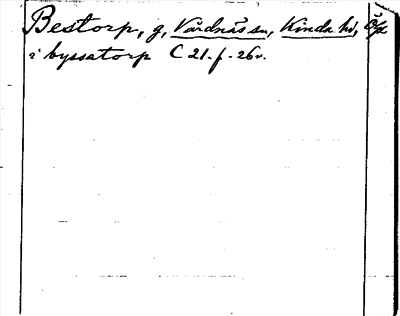 Bestorp, g, Vårdnäs sn, Kinda hd, Ög
i byssatorp C 21. f. 26v.